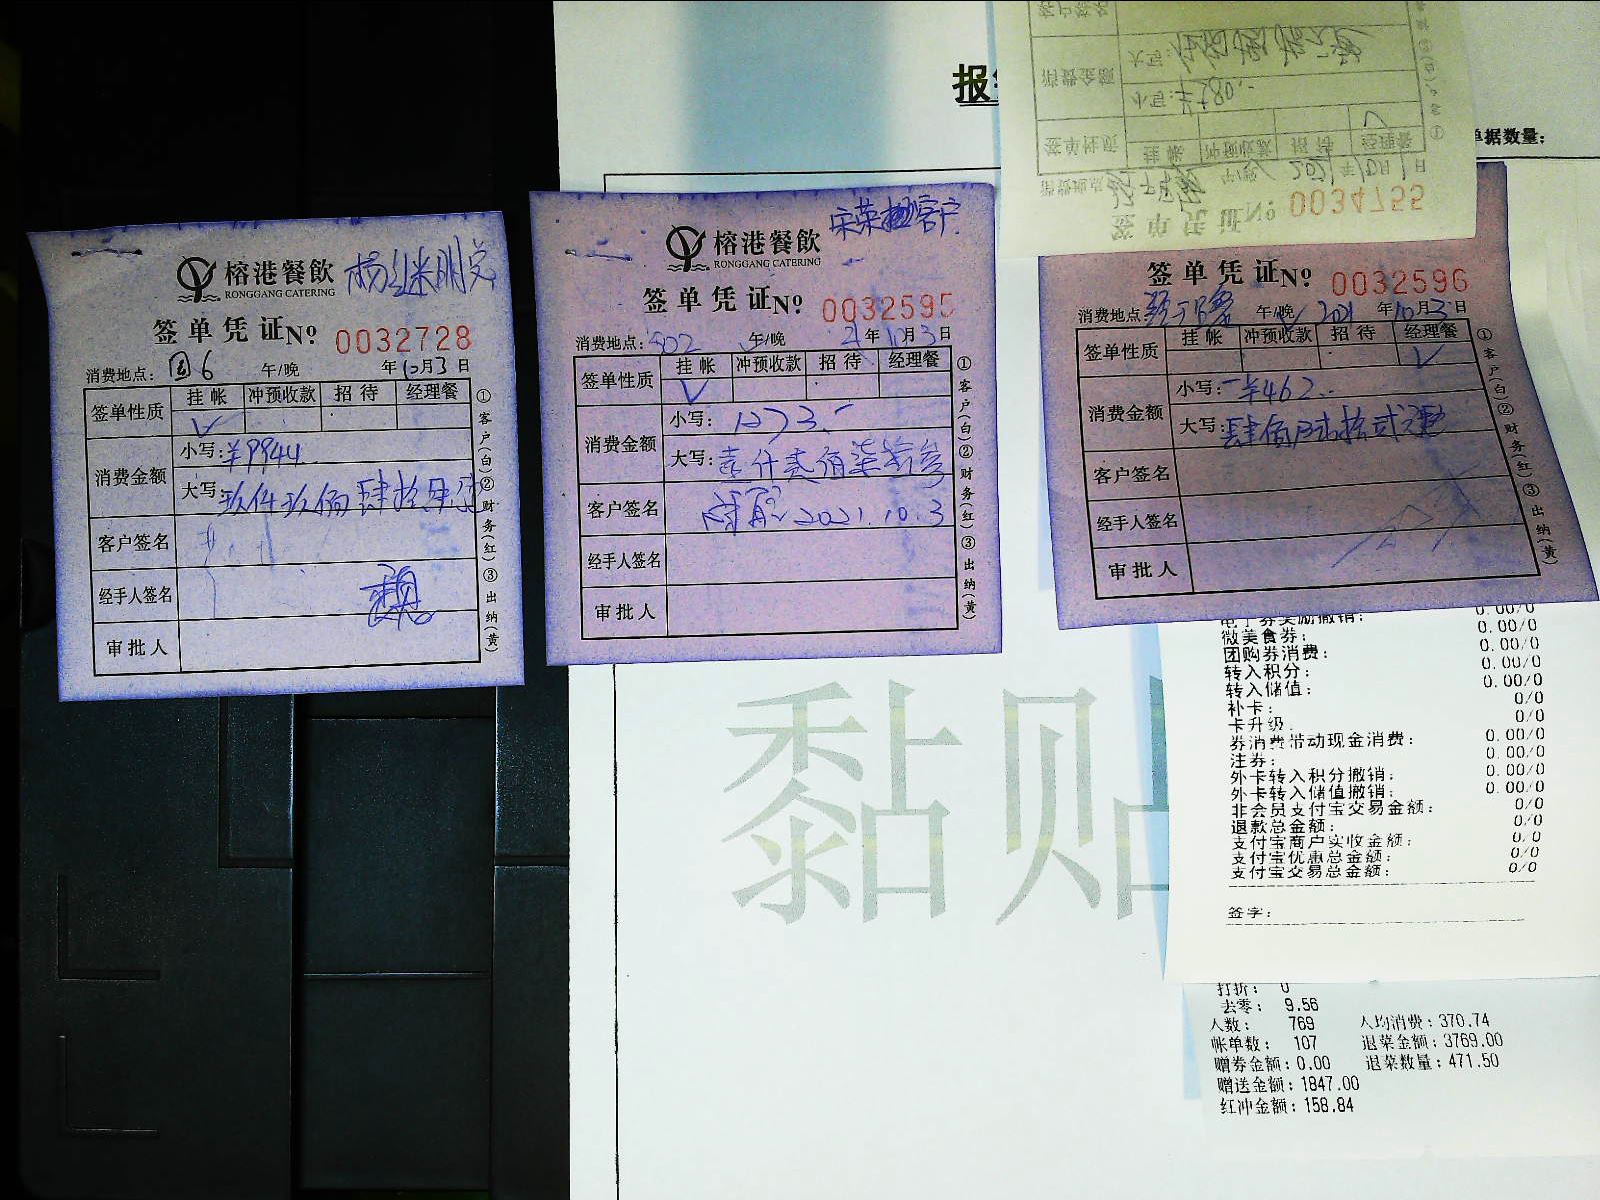 榕港餐飲
RONGGANG CATERING
签单凭证 No 0032728
消费地点: 园6 午/晚 年10月3日
签单性质 挂帐 冲预收款 招待 经理餐
√
消费金额
小写: ¥9944
大写: 玖仟玖佰肆拾肆
客户签名
经手人签名
审批人
①客户(白)②财务(红)③出纳(黄)
榕港餐飲
RONGGANG CATERING
签单凭证 No 0032595
消费地点: 502 午/晚 21年10月3日
签单性质 挂帐 冲预收款 招待 经理餐
√
消费金额
小写: 1273.-
大写: 壹仟贰佰柒拾叁
客户签名 2021.10.3
经手人签名
审批人
①客户(白)②财务(红)③出纳(黄)
消费金额
大写:
小写: ¥780.-
签单性质 挂帐 冲预收款 招待 经理餐
√
消费地点 午/晚 2021年10月1日
签单凭证 No 0034755
签单凭证 No 0032596
消费地点 午/晚 2021年10月3日
签单性质 挂帐 冲预收款 招待 经理餐
√
消费金额
小写: ¥462.-
大写: 肆佰陆拾贰元
客户签名
经手人签名
审批人
①客户(白)②财务(红)③出纳(黄)
报
单据数量:
黏贴
0.00/0
微美食券: 0.00/0
团购券消费: 0.00/0
转入积分: 0.00/0
转入储值: 0.00/0
补卡: 0/0
卡升级: 0/0
券消费带动现金消费: 0.00/0
注券: 0.00/0
外卡转入积分撤销: 0.00/0
外卡转入储值撤销: 0.00/0
非会员支付宝交易金额: 0/0
退款总金额: 0/0
支付宝商户实收金额: 0/0
支付宝优惠总金额: 0/0
支付宝交易总金额: 0/0
签字:
打折: 0
去零: 9.56
人数: 769 人均消费: 370.74
帐单数: 107 退菜金额: 3769.00
赠券金额: 0.00 退菜数量: 471.50
赠送金额: 1847.00
红冲金额: 158.84